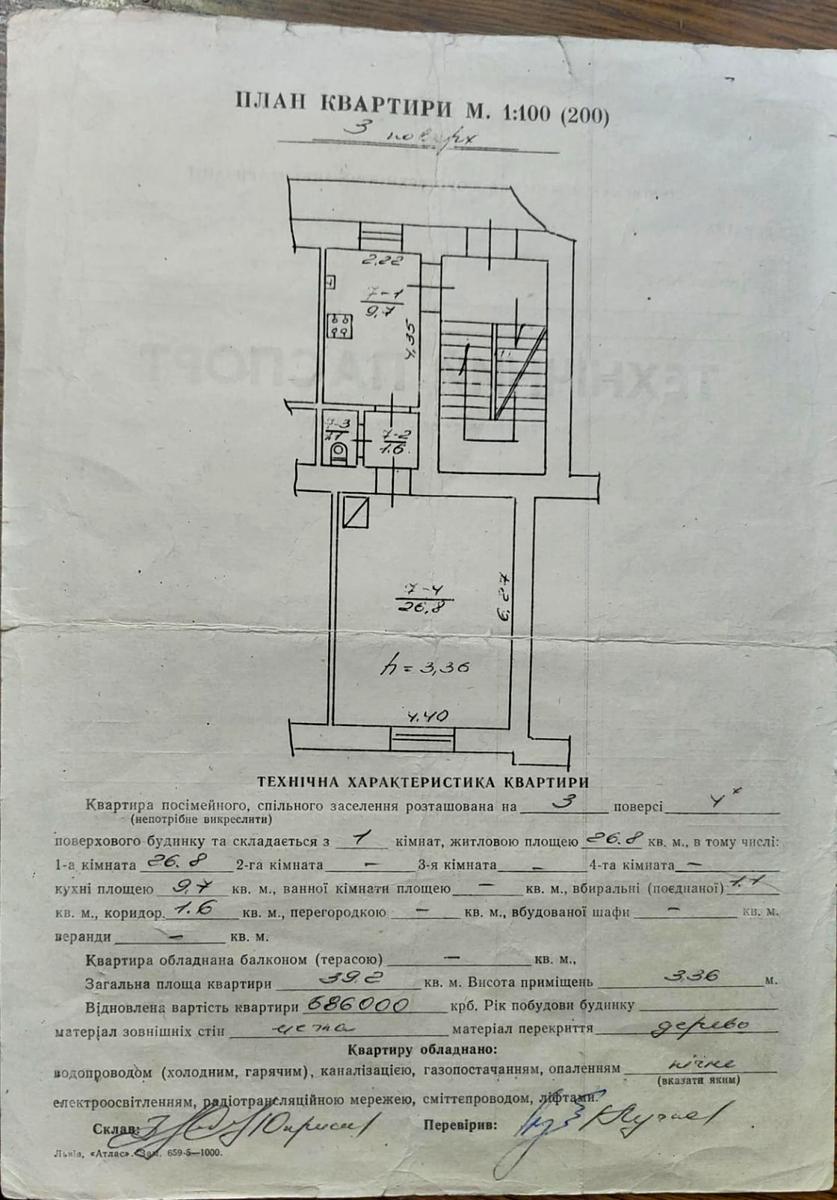 ПЛАН КВАРТИРИ М. 1:100 (200)
3 поверх
2,22
7-1
9,7
4,35
7-3
1,1
7-2
1.6
7-4
26,8
6,27
h = 3,36
4.40
ТЕХНІЧНА ХАРАКТЕРИСТИКА КВАРТИРИ
Квартира посімейного, спільного заселення розташована на 3 поверсі 4х
(непотрібне викреслити)
поверхового будинку та складається з 1 кімнат, житловою площею 26.8 кв. м., в тому числі:
1-а кімната 26.8 2-га кімната — 3-я кімната — 4-та кімната —
кухні площею 9,7 кв. м., ванної кімнати площею — кв. м., вбиральні (поєднаної) 1.1
кв. м., коридор. 1.6 кв. м., перегородкою — кв. м., вбудованої шафи — кв. м.
веранди — кв. м.
Квартира обладнана балконом (терасою) — кв. м.,
Загальна площа квартири 39.2 кв. м. Висота приміщень 3.36 м.
Відновлена вартість квартири 686000 крб. Рік побудови будинку
матеріал зовнішніх стін цегла матеріал перекриття дерево
Квартиру обладнано:
водопроводом (холодним, гарячим), каналізацією, газопостачанням, опаленням пічне
(вказати яким)
електроосвітленням, радіотрансляційною мережею, сміттєпроводом, ліфтами.
Склав: Перевірив:
Львів, «Атлас». Зам. 659-5—1000.